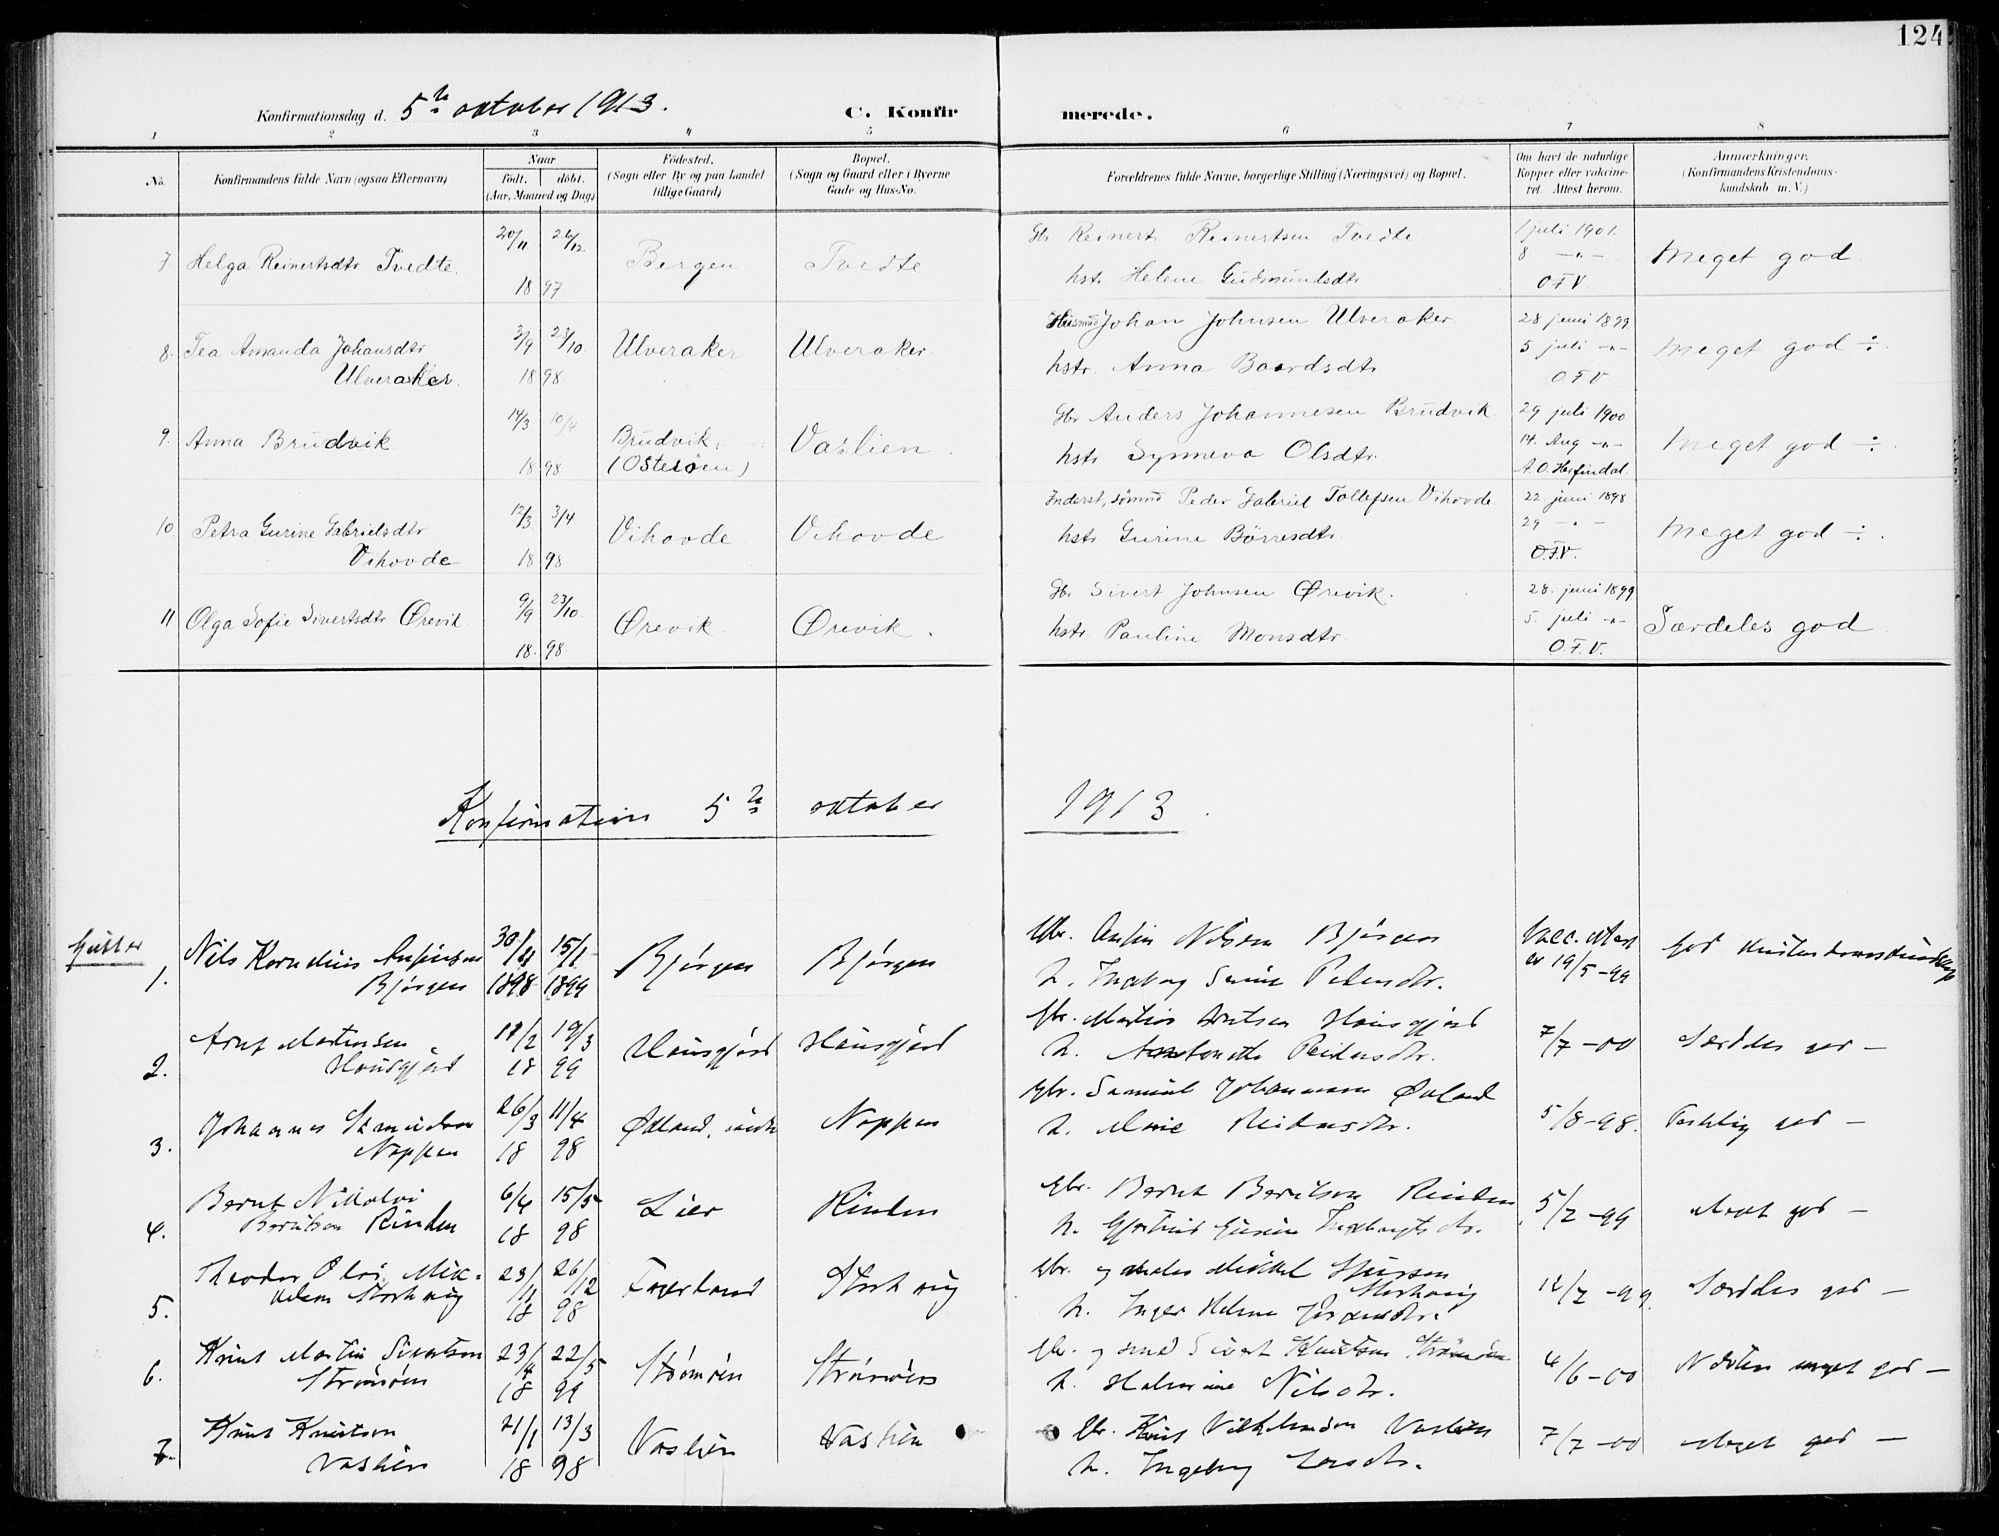 124
Konfirmationsdag d. 5te oktober 1913.
C. Konfirmerede.
1 2 3 4 5 6 7 8
No.
Konfirmandens fulde Navn (ogsaa Efternavn)
Naar
født. døbt.
(Aar, Maaned og Dag)
Fødested.
(Sogn eller By og paa Landet
tillige Gaard)
Bopæl.
(Sogn og Gaard eller i Byerne
Gade og Hus-No.
Forældrenes fulde Navne, borgerlige Stilling (Næringsvei) og Bopæl.
Om havt de naturlige
Kopper eller vakcine-
ret. Attest herom.
Anmærkninger.
(Konfirmandens Kristendoms-
kundskab m. V.)
7. Helga Reinertsdtr Tvedte. 20/11 26/12 1897 Bergen Tvedte
Gbr. Reinert Reinertsen Tvedte
hstr. Helene Gudmundsdtr
1 juli 1901.
8 -"-
O.F.V.
Meget god
8. Tea Amanda Johansdtr
Ulveraker. 2/9 23/10 1898. Ulveraker Ulveraker.
Husmd Johan Johnsen Ulveraker
hstr. Anna Baardsdtr
28 juni 1899
5 juli -"-
O F V
Meget god ÷.
9. Anna Brudvik 14/3 10/4 1898 Brudvik,
(Osterøen) Vaslien.
Gbr Anders Johannesen Brudvik
hstr Synneva Olsdtr.
29 juli 1900
14. Aug -"-
A.O. Herfindal.
Meget god ÷
10. Petra Gurine Gabrielsdtr
Vihovde 12/3 3/4 1898 Vihovde Vihovde
Inderst, sømnd Peder Gabriel Tollefsen Vihovde.
hstr Gurine Børresdtr.
22. juni 1898
29 -"-
O.F.V.
Meget god ÷.
11 Olga Sofie Sivertsdtr Ørevik 9/9 23/10. 18.98. Ørevik Ørevik.
Gbr Sivert Johnsen Ørevik.
hstr. Pauline Monsdtr.
28. juni 1899
5. juli -"-
O.F.V.
Særdeles god
Konfirmation 5te oktober 1913.
Gutter
1. Nils Kornelius
Bjørgen 1898 15/1 1899 Bjørgen Bjørgen
Gbr. Nilsen Bjørgen
h. Ingborg Petersdtr.
Vacc. attest
er 19/5-99
God Kristendomskundskap
2. Arnt Martinsen
Hausgjerd 19/3 18 99 Hausgjerd Hausgjerd
Gbr. Hausgjerd
h. Reidarsdtr.
7/7-00
Særdeles god –
3. Johannes
Noppen 26/3 11/4 18 98 Noppen
Gbr. Samuel
h. Marie Reidarsdtr.
5/8-98.
god –
4. Bernt Nikolai
Berntsen Rinden 6/4 15/5 18 98 Lier Rinden
Gbr. Bernt Berntsen Rinden
h.
5/7-99
Meget god –
5. Theodor Olai Mik-
kelsen Storhaug 23/11 26/12 18 98 Storhaug
Gbr. og Mikkel
h. Inger Helene
12/7-99.
Særdeles god –
6. Knut Martin Sivertsen
Strømøen 23/4 22/5 18 99 Strømøen Strømøen
Gbr. og smed Sivert Knutsen Strømøen
h. Nilsdtr.
4/6-00
Næsten meget god –
7. Knut Knutsen
Vaslien 21/1 13/3 18 98 Vaslien Vaslien
Gbr. Knut Vilhelmsen Vaslien
h. Ingeborg Larsdtr.
7/7-00
Meget god –